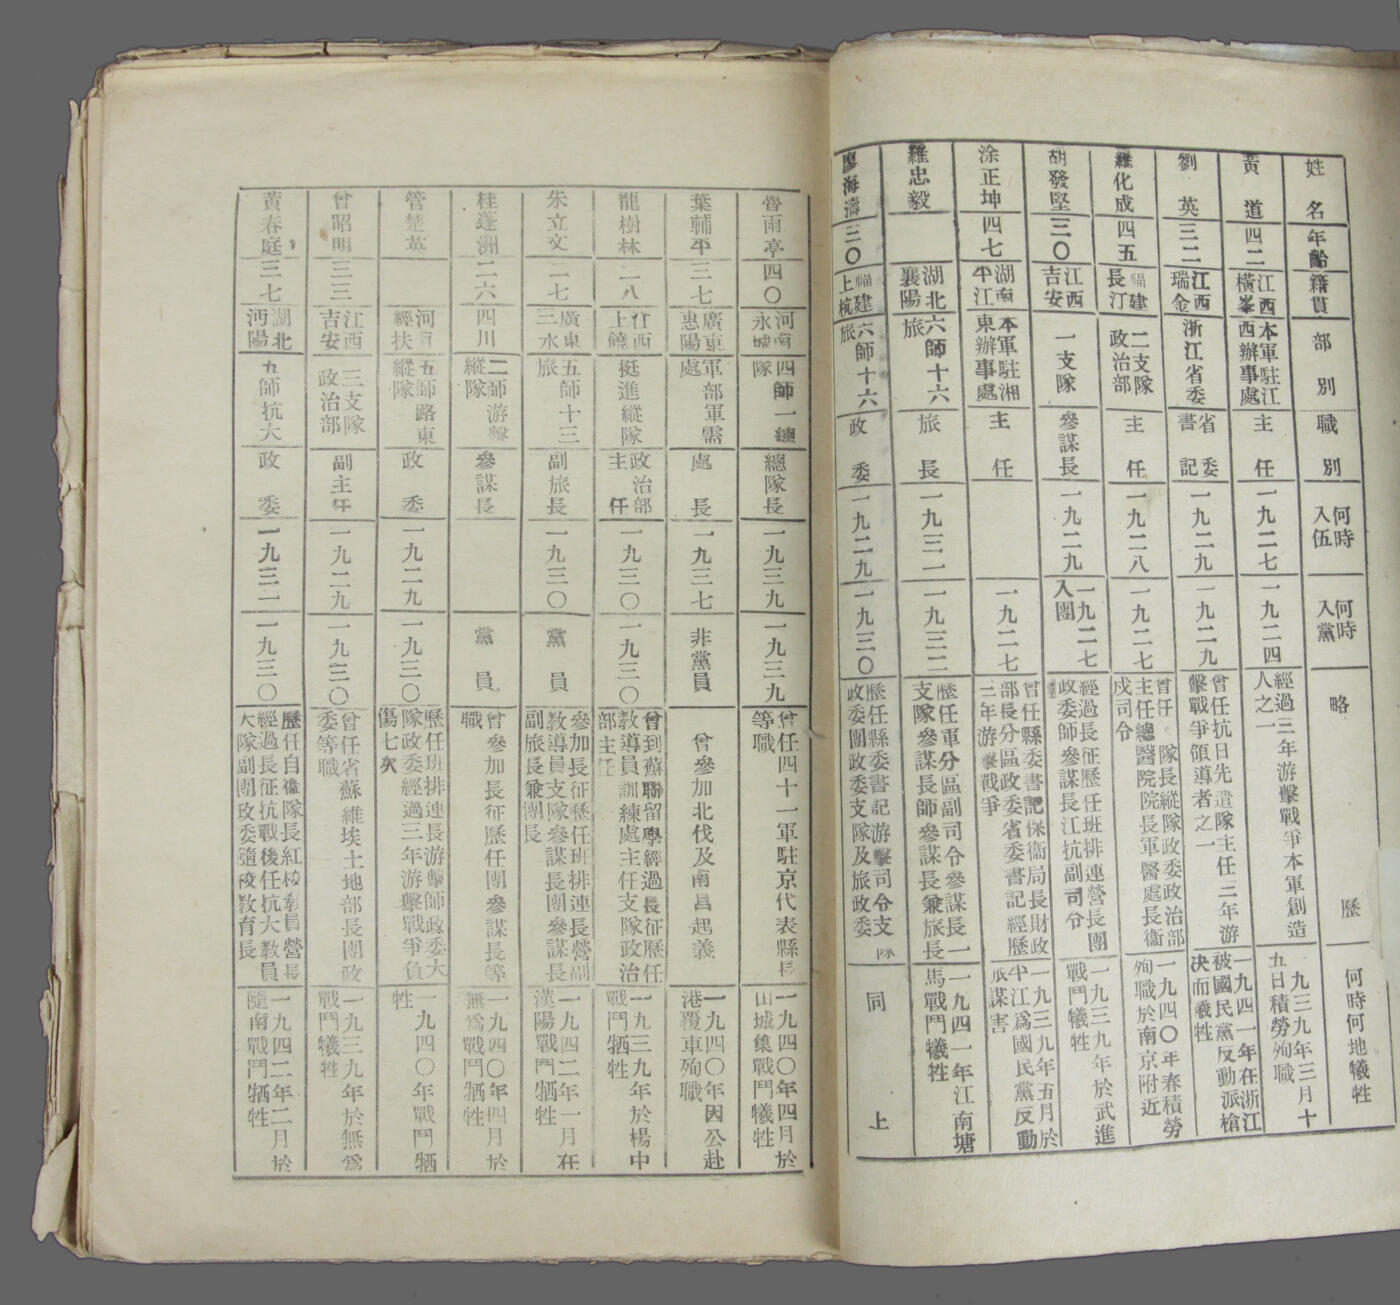 姓名 年齡 籍貫 部別 職別 何時入伍 何時入黨 略歷 何時何地犧牲
黃道 四二 江西橫峯 本軍駐江西辦事處 主任 一九二七 一九二四 經過三年游擊戰爭本軍創造人之一 一九三九年三月十五日積勞殉職
劉英 三二 江西瑞金 浙江省委 省委書記 一九二九 一九二九 曾任抗日先遣隊主任三年游擊戰爭領導者之一 一九四一年在浙江被國民黨反動派槍決而犧牲
羅化成 四五 福建長汀 二支隊政治部 主任 一九二八 一九二七 曾任隊長縱隊政委政治部主任總醫院院長軍醫處長衞戍司令 一九四〇年春積勞殉職於南京附近
胡發堅 三〇 江西吉安 一支隊 參謀長 一九二九 一九二七入團 經過長征歷任班排連營長團政委師參謀長江抗副司令 一九三九年於武進戰鬥犧牲
涂正坤 四七 湖南平江 本軍駐湘東辦事處 主任 一九二七 曾任縣委書記保衞局長財政部長分區政委省委書記經歷三年游擊戰爭 一九三九年五月於平江爲國民黨反動派謀害
羅忠毅 湖北襄陽 六師十六旅 旅長 一九三一 一九三二 歷任軍分區副司令參謀長一支隊參謀長師參謀長兼旅長 一九四一年江南塘馬戰鬥犧牲
廖海濤 三〇 福建上杭 六師十六旅 政委 一九二九 一九三〇 歷任縣委書記游擊司令支隊政委團政委支隊及旅政委 同上
魯雨亭 四〇 河南永城 四師一總隊 總隊長 一九三九 一九三九 曾任四十一軍駐京代表縣長等職 一九四〇年四月於山城集戰鬥犧牲
葉輔平 三七 廣東惠陽 軍部軍需處 處長 一九三七 非黨員 曾參加北伐及南昌起義 一九四〇年因公赴港覆車殉職
龍樹林 二八 江西上饒 挺進縱隊 政治部主任 一九三〇 一九三〇 曾到蘇聯留學經過長征歷任教導員訓練處主任支隊政治部主任 一九三九年於楊中戰鬥牺牲
朱立文 二七 廣東三水 五師十三旅 副旅長 一九三〇 黨員 參加長征歷任班排連長營副教導員支隊參謀長團參謀長副旅長兼團長 一九四二年一月在漢陽戰鬥牺牲
桂蓬洲 二六 四川 二師游擊縱隊 參謀長 黨員 曾參加長征歷任團參謀長等職 一九四〇年四月於無爲戰鬥牺牲
管楚英 河南經扶 五師路東縱隊 政委 一九二九 一九三〇 歷任班排連長游擊師政委大隊政委經過三年游擊戰爭負傷七次 一九四〇年戰鬥牺牲
曾昭明 三三 江西吉安 三支隊政治部 副主任 一九二九 一九三〇 曾任省蘇維埃土地部長團政委等職 一九三九年於無爲戰鬥犧牲
黃春庭 三七 湖北沔陽 五師抗大 政委 一九三一 一九三〇 歷任自衞隊長紅校教員營長經過長征抗戰後任抗大教員大隊副團政委隨校教育長 一九四二年二月於隨南戰鬥牺牲